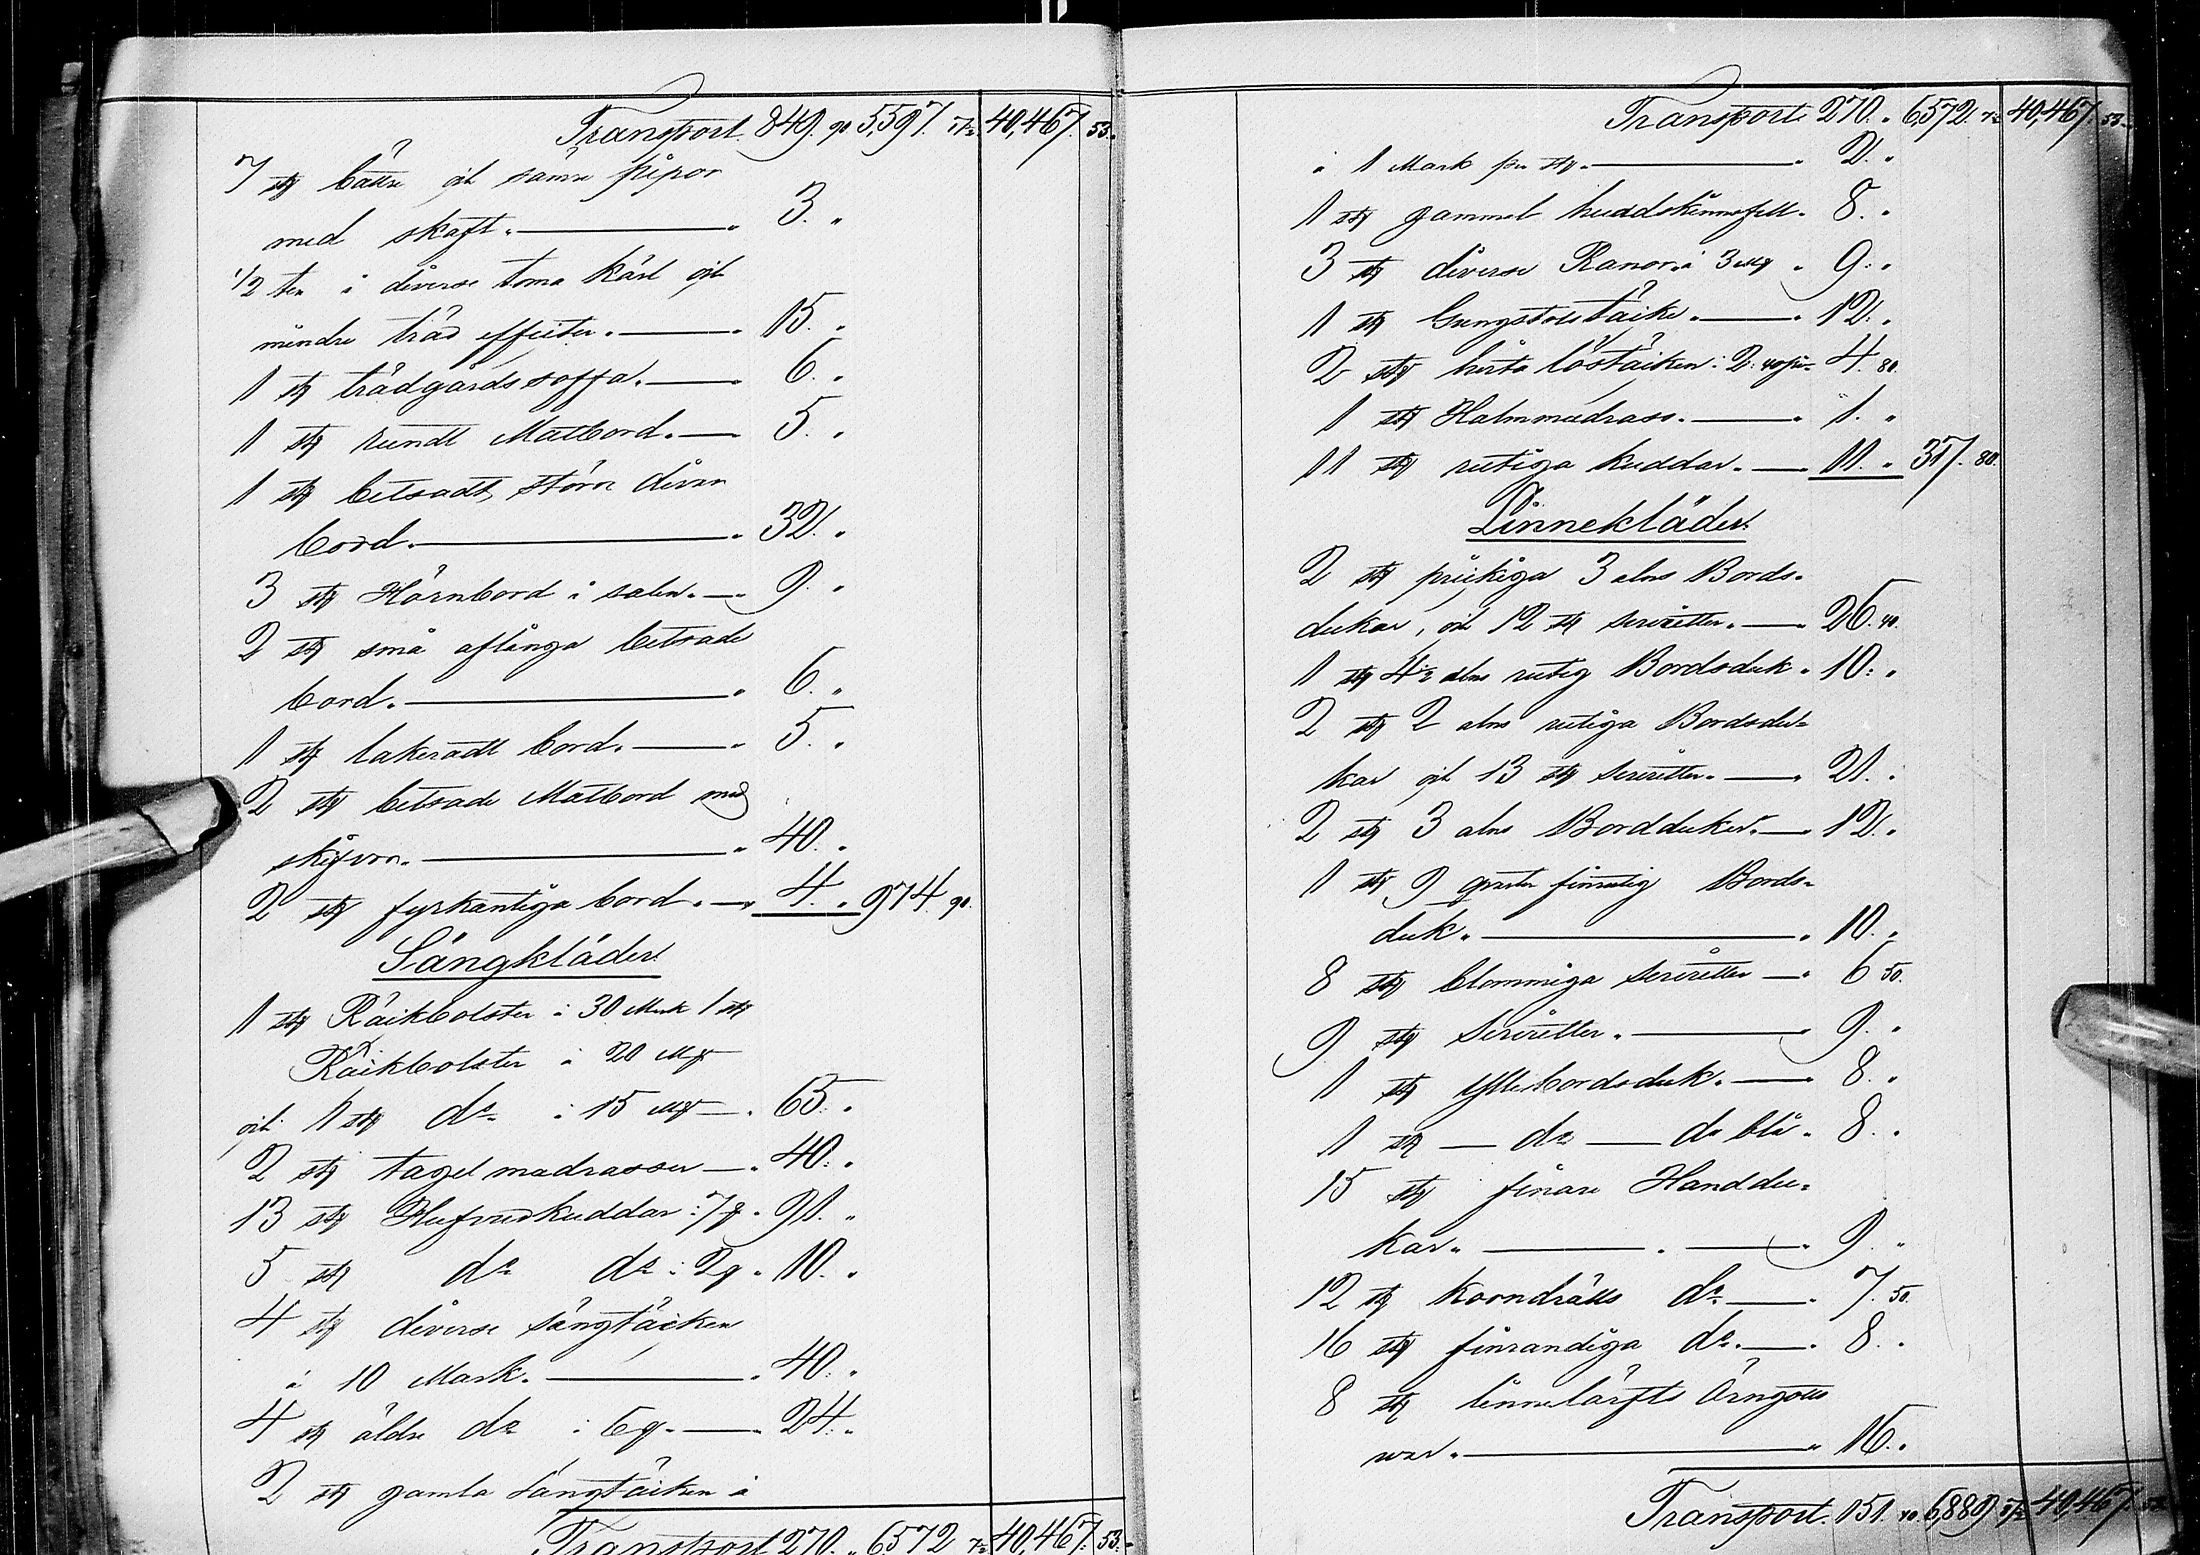 Transport. 849. 90 5,597. 40,467. 53.
7 st bättre och sämre pipor
med skaft. — 3. "
1/2 ten i diverse toma kärl och
mindre träd effecter. — 15. "
1 st trädgårdssoffa. — 6. "
1 st rundt Matbord. — 5. "
1 st betsadt större divan
bord. — 32. "
3 st Hörnbord i salen. — 9. "
2 st små aflånga betsade
bord. — 6. "
1 st lakeradt bord. — 5. "
2 st betsade Matbord med
skifvor. — 40. "
2 st fyrkantiga bord. — 4. " 974. 90.
Sängkläder.
1 st Räikbolster à 30 Mark 1 st
Räikbolster à 20 Mk
och 1 st do à 15 Mk — 65. "
2 st tagelmadrasser — 40. "
13 st Hufvudkuddar à 7 91. "
5 st do do à 2 10. "
4 st diverse sängtäcken
à 10 Mark. — 40. "
4 st äldre do à 6 — 24. "
2 st gamla sängtäcken à
Transport 270. " 6572 40,467. 53.
Transport. 270. " 6,572. 40,467. 53
à 1 Mark per st. — 2. "
1 st gammel huddskinnsfell. 8. "
3 st diverse Ranor à 3 Mk 9. "
1 st Gungstolstäcke. — 12. "
2 st hvita löstäcken à 2: 40 4. 80.
1 st Halmmadrass. — 1. "
11 st rutiga kuddar. — 11. " 37. 80.
Linnekläder.
2 st prickiga 3 alns Bords-
dukar, och 12 st servietter. — 26. 40.
1 st 4 1/2 alns rutig Bordsduk. 10. "
2 st 2 alns rutiga Bordsdu-
kar och 13 st servietter. — 21. "
2 st 3 alns Borddukar. — 12. "
1 st 9 qvarter finrutig Bords-
duk. — 10. "
8 st blommiga servietter — 6 50.
9 st Servietter. — 9. "
1 st yllebordsduk. — 8. "
1 st — do — do blå. 8. "
15 st finare Handdu-
kar. — 9. "
12 st korndrälls do — 7. 50.
16 st finrandiga do. — 8. "
8 st linnelärfts Örngotts
war. — 16. "
Transport. 151. 40. 6,889 40,467.